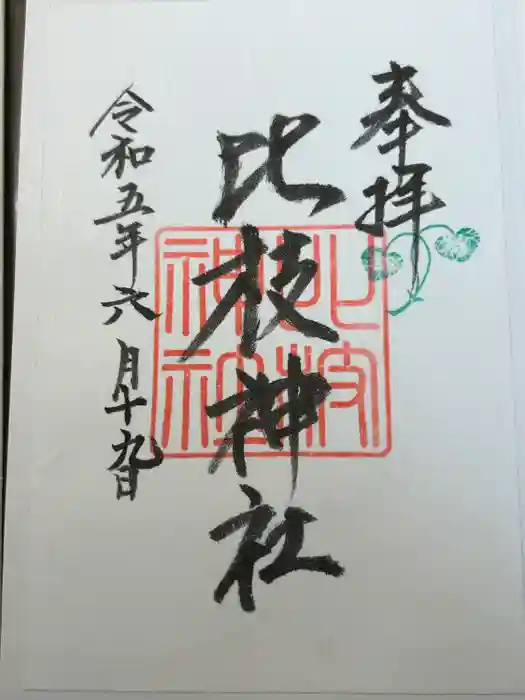 奉拝
比枝神社
令和五年六月十九日
比枝
神社